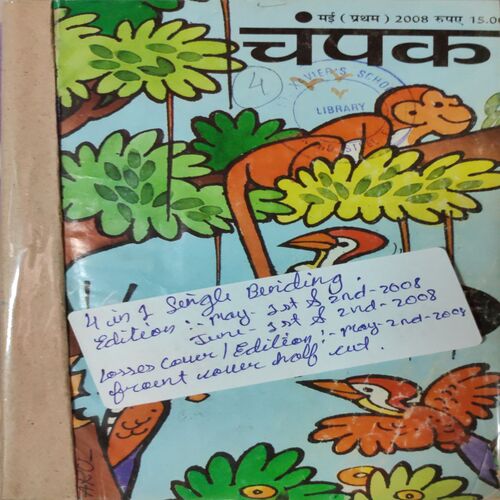 मई ( प्रथम ) 2008 रुपए 15.0
चंपक
4
XAVIER'S SCHO
LIBRARY
4 in 1 Single Bending.
Edition :- May- 1st & 2nd-2008
June- 1st & 2nd-2008
Losses Cover / Edition :- May-2nd-2008
froent cover half cut.